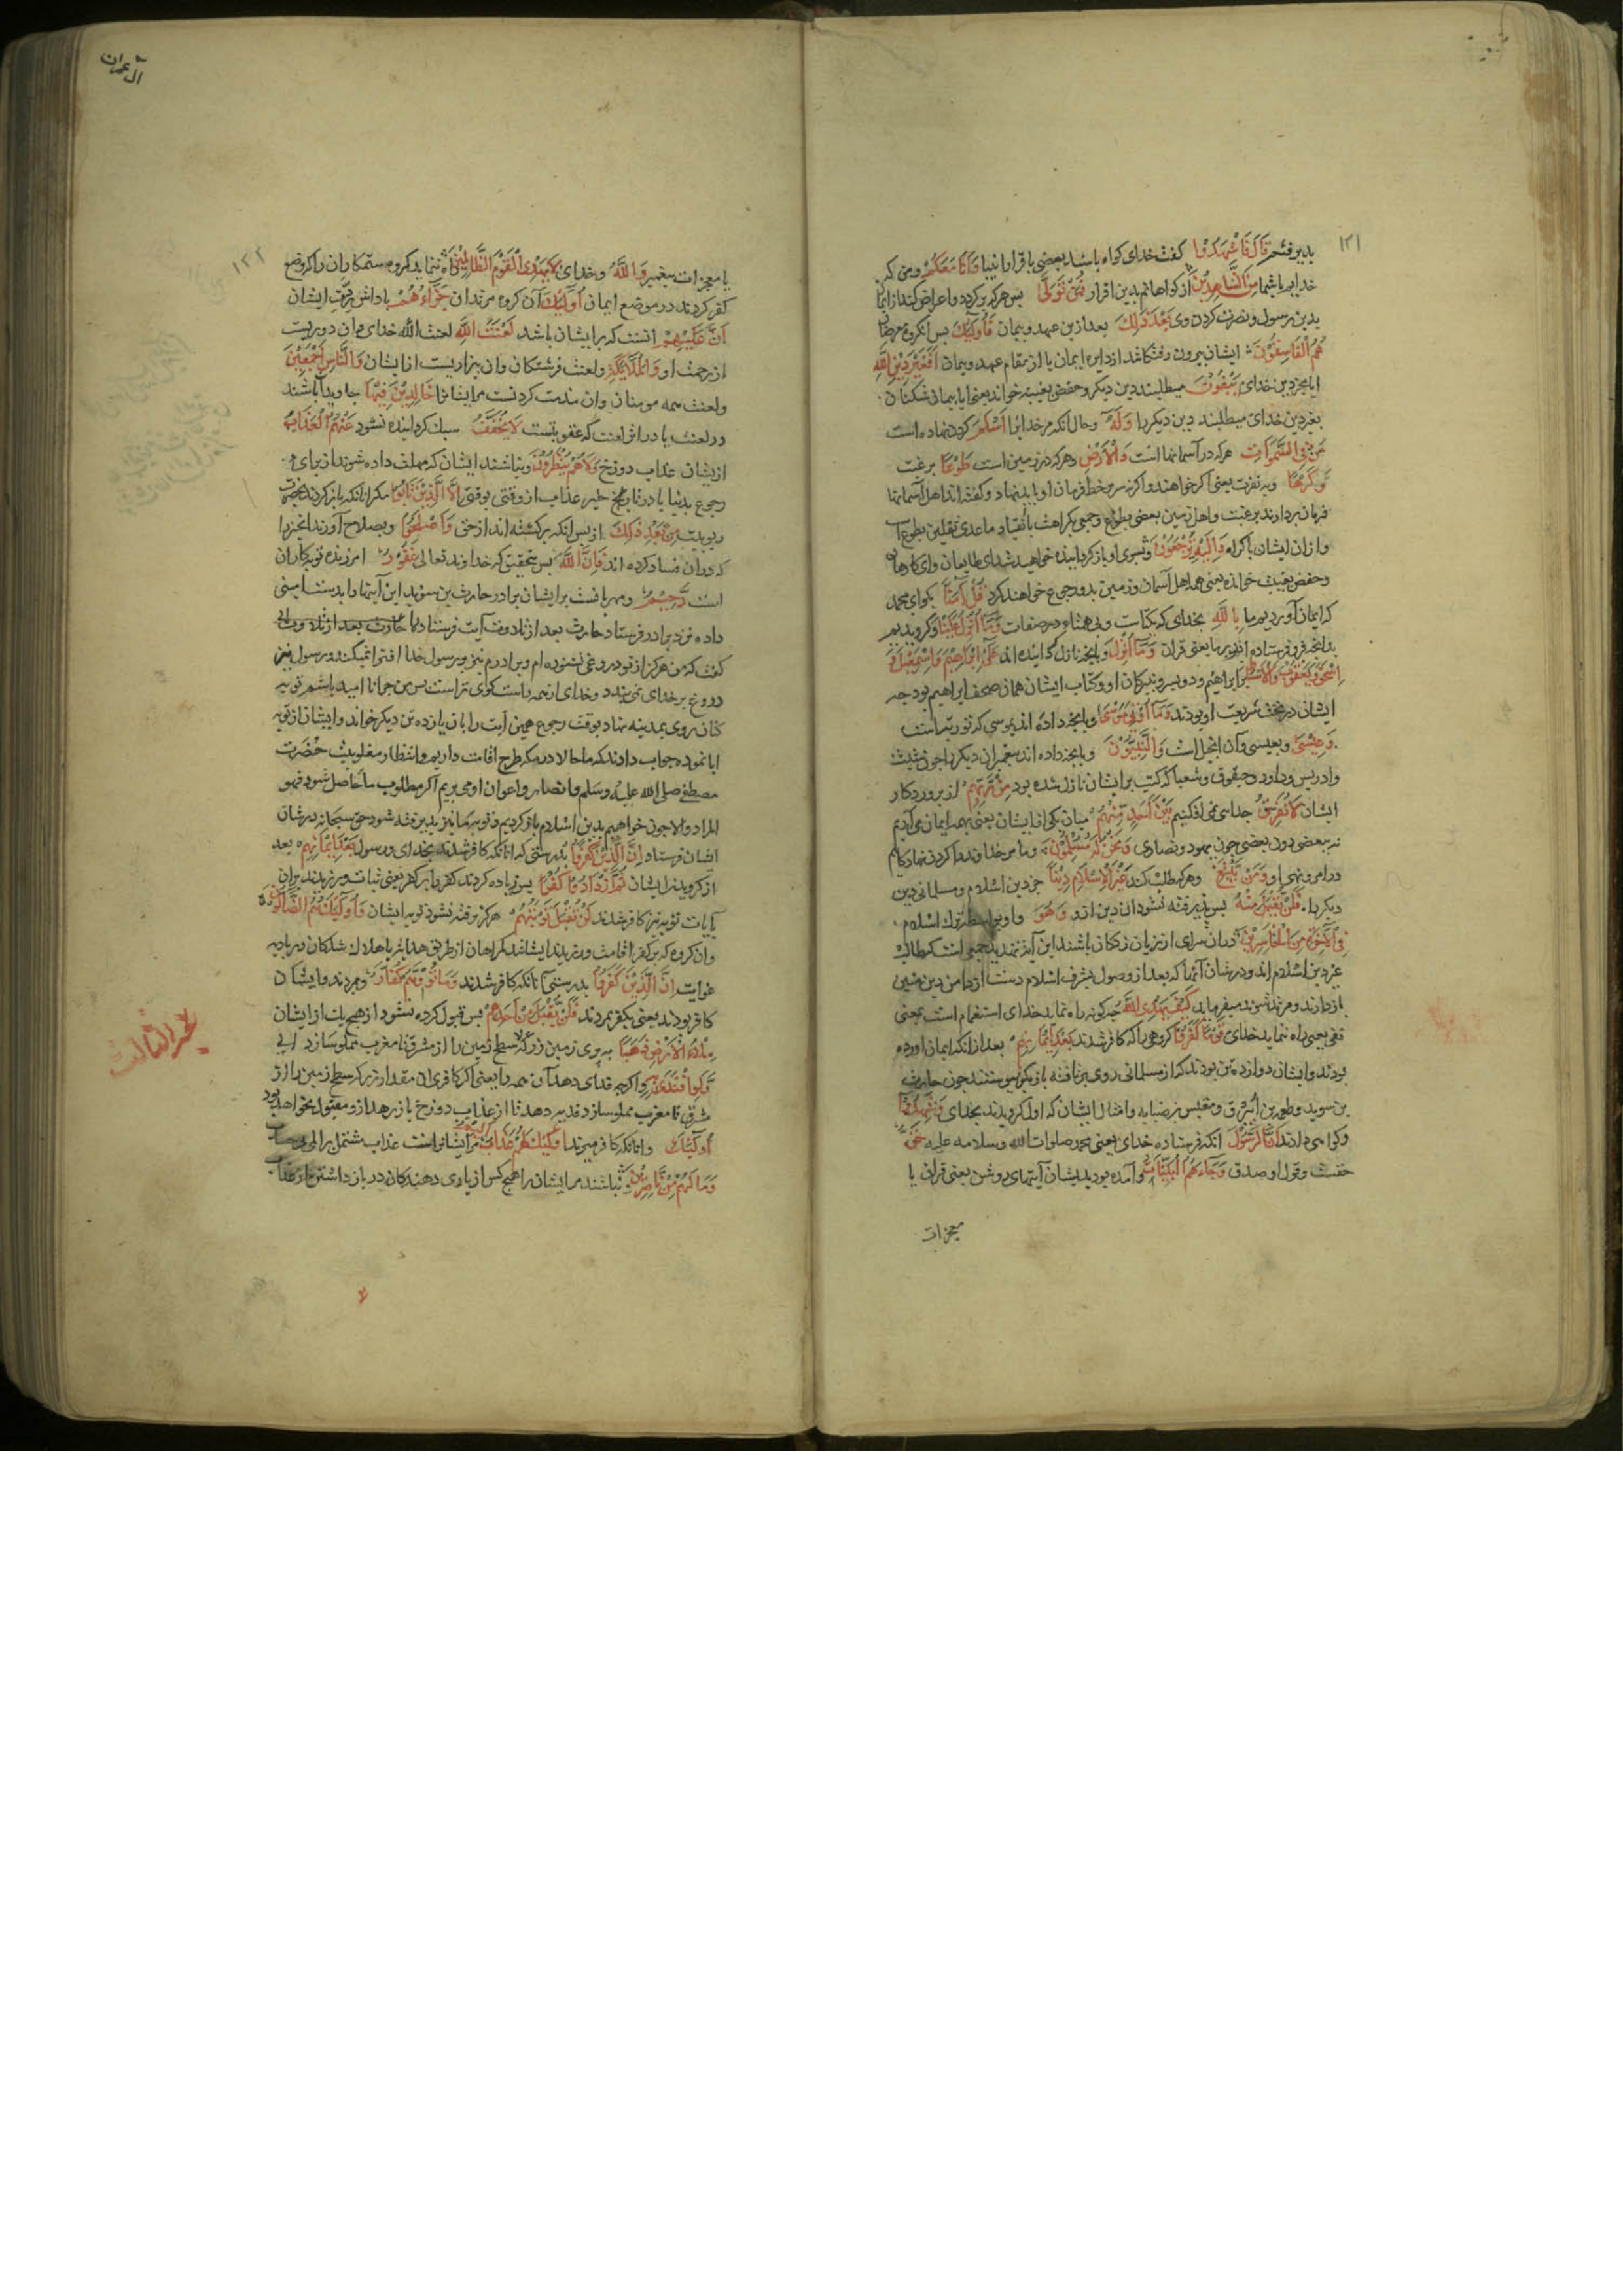 ۱۲۱
بدین قسم قَالَ فَاشْهَدُوا کفت خدای کواه باشید بعضی باقرار انبیا وَاَنَا مَعَکُمْ ومن که
خدایم باشما مِنَ الشَّاهِدِیْنَ از کواهانم بدین اقرار فَمَنْ تَوَلَّی پس هرکه برکردد واعراض کند از ایمان
بدین رسول ونصرت کردن وی بَعْدَ ذَلِكَ بعد ازین عهد وپیمان فَاُولٰئِكَ پس آنکروه معرضان
هُمُ الْفَاسِقُوْنَ ایشان بیرون رفتکانند از دایره ایمان یا از مقام عهد وپیمان اَفَغَیْرَ دِیْنِ اللّٰهِ
ایا بجز دین خدای یَبْغُوْنَ میطلبند دین دیکر وحفص بغیبت خواند یعنی ایا پیمان شکنان
بغیر دین خدای میطلبند دین دیکر را وَلَهٗ وحال آنکه مر خدایرا اَسْلَمَ کردن نهاده است
مَنْ فِی السَّمٰوَاتِ هرکه در آسمانها است وَالْاَرْضِ وهرکه در زمین است طَوْعًا برغبت
وَّکَرْهًا وبه نفرت یعنی اکر خواهند واکر نه سر بخط فرمان او باید نهاد وکفته اند اهل آسمانها
فرمان بردارند برغبت واهل زمین بعضی بطوع وجمعی بکراهت یا انقیاد ماعدی ثقلین بطوع است
وازان ایشان باکراه وَاِلَیْهِ تُرْجَعُوْنَ وبسوی او باز کردانیده خواهید شد ای طایعان وای کارهان
وحفص بغیبت خوانده یعنی همه اهل آسمان وزمین بدو رجوع خواهند کرد قُلْ اٰمَنَّا بکو ای محمد
که ایمان آوردیم ما بِاللّٰهِ بخدای که یکتاست وبی همتا در صفات وَمَا اُنْزِلَ عَلَیْنَا وکرویدیم
بدانچه فرو فرستاده اند بر ما یعنی قرآن وَمَا اُنْزِلَ وبانچه نازل کردانیده اند عَلٰی اِبْرَاهِیْمَ وَاِسْمٰعِیْلَ وَ
اِسْحٰقَ وَیَعْقُوْبَ وَالْاَسْبَاطِ بر ابراهیم ودو پسر ونبیرکان او وکتاب ایشان همان صحف ابراهیم بود چه
ایشان در تحت شریعت او بودند وَمَا اُوْتِیَ مُوْسٰی وبانچه داده اند بموسی که توریتست
وَعِیْسٰی وبعیسی وآن انجیل است وَالنَّبِیُّوْنَ وبانچه داده اند پیغمبران دیکر را چون شیث
وادریس وداود وحیقوق وشعیا که کتب بر ایشان نازل شده بود مِنْ رَّبِّهِمْ از پروردکار
ایشان لَا نُفَرِّقُ جدایی نمی افکنیم بَیْنَ اَحَدٍ مِّنْهُمْ میان یکی از ایشان یعنی بهمه ایمان می آریم
نه ببعضی دون بعضی چون یهود ونصاری وَنَحْنُ لَهٗ مُسْلِمُوْنَ وما مر خداوند را کردن نهادکانیم
در امر ونهی او وَمَنْ یَّبْتَغِ وهرکه طلب کند غَیْرَ الْاِسْلَامِ دِیْنًا جز دین اسلام ومسلمانی دین
دیکر را فَلَنْ یُّقْبَلَ مِنْهُ پس پذیرفته نشود آن دین ازو وَهُوَ واو بواسطه ترك اسلام
فِی الْاٰخِرَةِ مِنَ الْخَاسِرِیْنَ در آن سرای از زیان زدکان باشند این آیة تهدید جمعی است که طالب
غیر دین اسلام اند ودر شان آنها که بعد از وصول بشرف اسلام دست از دامن دین متین
باز دارند ومرتد شوند میفرماید کَیْفَ یَهْدِی اللّٰهُ چکونه راه نماید خدای استفهام است بمعنی
نفی یعنی راه ننماید خدای قَوْمًا کَفَرُوْا کروهی را که کافر شدند بَعْدَ اِیْمَانِهِمْ بعد از آنکه ایمان آورده
بودند وایشان دوازده تن بودند که از مسلمانی روی برتافته باز بکفر پیوستند چون حارث
بن سوید وطعمه بن ابیرق ومقیس بن ضبابه وامثال ایشان که اول کرویدند بخدای وَشَهِدُوْا
وکواهی دادند اَنَّ الرَّسُوْلَ آنکه فرستاده خدای یعنی محمد صلوات الله وسلامه علیه حَقٌّ
حقست وقول او صدق وَجَاءَهُمُ الْبَیِّنَاتُ وآمده بود بدیشان آیتهای روشن یعنی قرآن یا
معجزات
آل عمران
۱۲۲
یا معجزات پیغمبر وَاللّٰهُ وخدای لَا یَهْدِی الْقَوْمَ الظَّالِمِیْنَ راه ننماید کروه ستمکاران را که وضع
کفر کردند در موضع ایمان اُولٰئِكَ آن کروه مرتدان جَزَاءُهُمْ پاداش ردّت ایشان
اَنَّ عَلَیْهِمْ آنست که بر ایشان باشد لَعْنَتَ اللّٰهِ لعنت الله خدای وآن دوریست
از رحمت او وَالْمَلٰئِکَةِ ولعنت فرشتکان وآن بیزاریست از ایشان وَالنَّاسِ اَجْمَعِیْنَ
ولعنت همه مومنان وآن مذمت کردنست مر ایشانرا خَالِدِیْنَ فِیْهَا جاوید باشند
در لعنت یا در اثر لعنت که عقوبتست لَا یُخَفَّفُ سبك کردانیده نشود عَنْهُمُ الْعَذَابُ
از ایشان عذاب دوزخ وَلَا هُمْ یُنْظَرُوْنَ ونباشند ایشان که مهلت داده شوند از برای
رجوع بدنیا یا در تاخیر عذاب از وقتی بوقتی اِلَّا الَّذِیْنَ تَابُوْا مکر آنانکه باز کردند
وتوبت مِنْ بَعْدِ ذٰلِكَ از پس آنکه برکشته اند از حق وَاَصْلَحُوْا وبصلاح آورند آنچیز را
که در آن فساد کرده اند فَاِنَّ اللّٰهَ پس بتحقیق که خداوند تعالی غَفُوْرٌ آمرزنده توبه کاران
است رَّحِیْمٌ ومهربانست بر ایشان برادر حارث بن سوید این آیتها را بدست امینی
داده نزد برادر فرستاد حارث بعد از تلاوت آیت
کفت که من هرکز از تو دروغی نشنوده ام وبرادرم نیز بر رسول خدا افترا نمیکند ورسول نیز
دروغ بر خدای نمی بندد وخدای از همه راست کوی تر است پس من چرا نا امید باشم توبه
کنان روی بمدینه نهاد بوقت رجوع همین آیت را بآن یازده تن دیکر خواند وایشان از توبه
ابا نموده جواب دادند که ما حالا در مکه طرح اقامت داریم وانتظار مغلوبیت حضرت
مصطفی صلی الله علیه وسلم وانصار واعوان او می بریم اکر مطلوب ما حاصل شود فهو
المراد والا چون خواهیم بدین اسلام باز کردیم وتوبه ما نیز پذیرفته شود حق سبحانه در شان
ایشان فرستاد اِنَّ الَّذِیْنَ کَفَرُوْا بدرستی که آنانکه کافر شدند بخدای ورسول بَعْدَ اِیْمَانِهِمْ بعد
از کرویدن ایشان ثُمَّ ازْدَادُوْا کُفْرًا پس زیاده کردند کفر را بر کفر یعنی ثبات ورزیدند بران
لَنْ تُقْبَلَ تَوْبَتُهُمْ هرکز پذیرفته نشود توبه ایشان وَاُولٰئِكَ هُمُ الضَّالُّوْنَ
وآن کروه که بر کفر اقامت ورزیدند ایشانند کمراهان از طریق هدایت یا هلاك شدکان در بادیه
غوایت اِنَّ الَّذِیْنَ کَفَرُوْا بدرستی آنانکه کافر شدند وَمَاتُوْا وَهُمْ کُفَّارٌ ومردند وایشان
کافر بودند یعنی بکفر مردند فَلَنْ یُّقْبَلَ مِنْ اَحَدِهِمْ پس قبول کرده نشود از هیچ یك از ایشان
مِلْءُ الْاَرْضِ ذَهَبًا به پری زمین زر که سطح زمین را از مشرق تا مغرب مملو سازد
وَّلَوِ افْتَدٰی بِهٖ واکرچه فدای دهد آن همه را یعنی اکر کافری آن مقدار زر که سطح زمین را از
مشرق تا مغرب مملو سازد فدیه دهد تا از عذاب دوزخ باز رهد ازو مقبول نخواهد بود
اُولٰئِكَ وآنانکه کافر میرند لَهُمْ عَذَابٌ اَلِیْمٌ مر ایشانراست عذاب مشتمل بر الم
وَمَا لَهُمْ مِّنْ نَّاصِرِیْنَ ونباشند مر ایشان را هیچ کس از یاری دهندکان در باز داشتن از عذاب